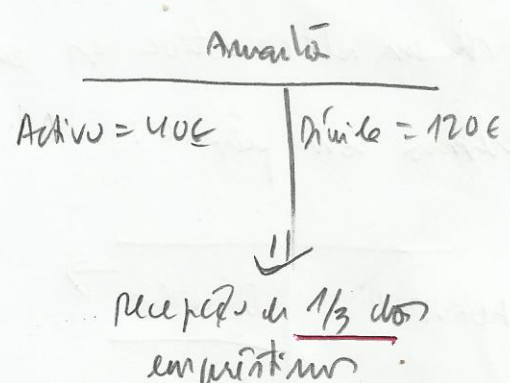 Amanhã
Activo = 40€
Dívida = 120€
recepção de 1/3 dos
empréstimos